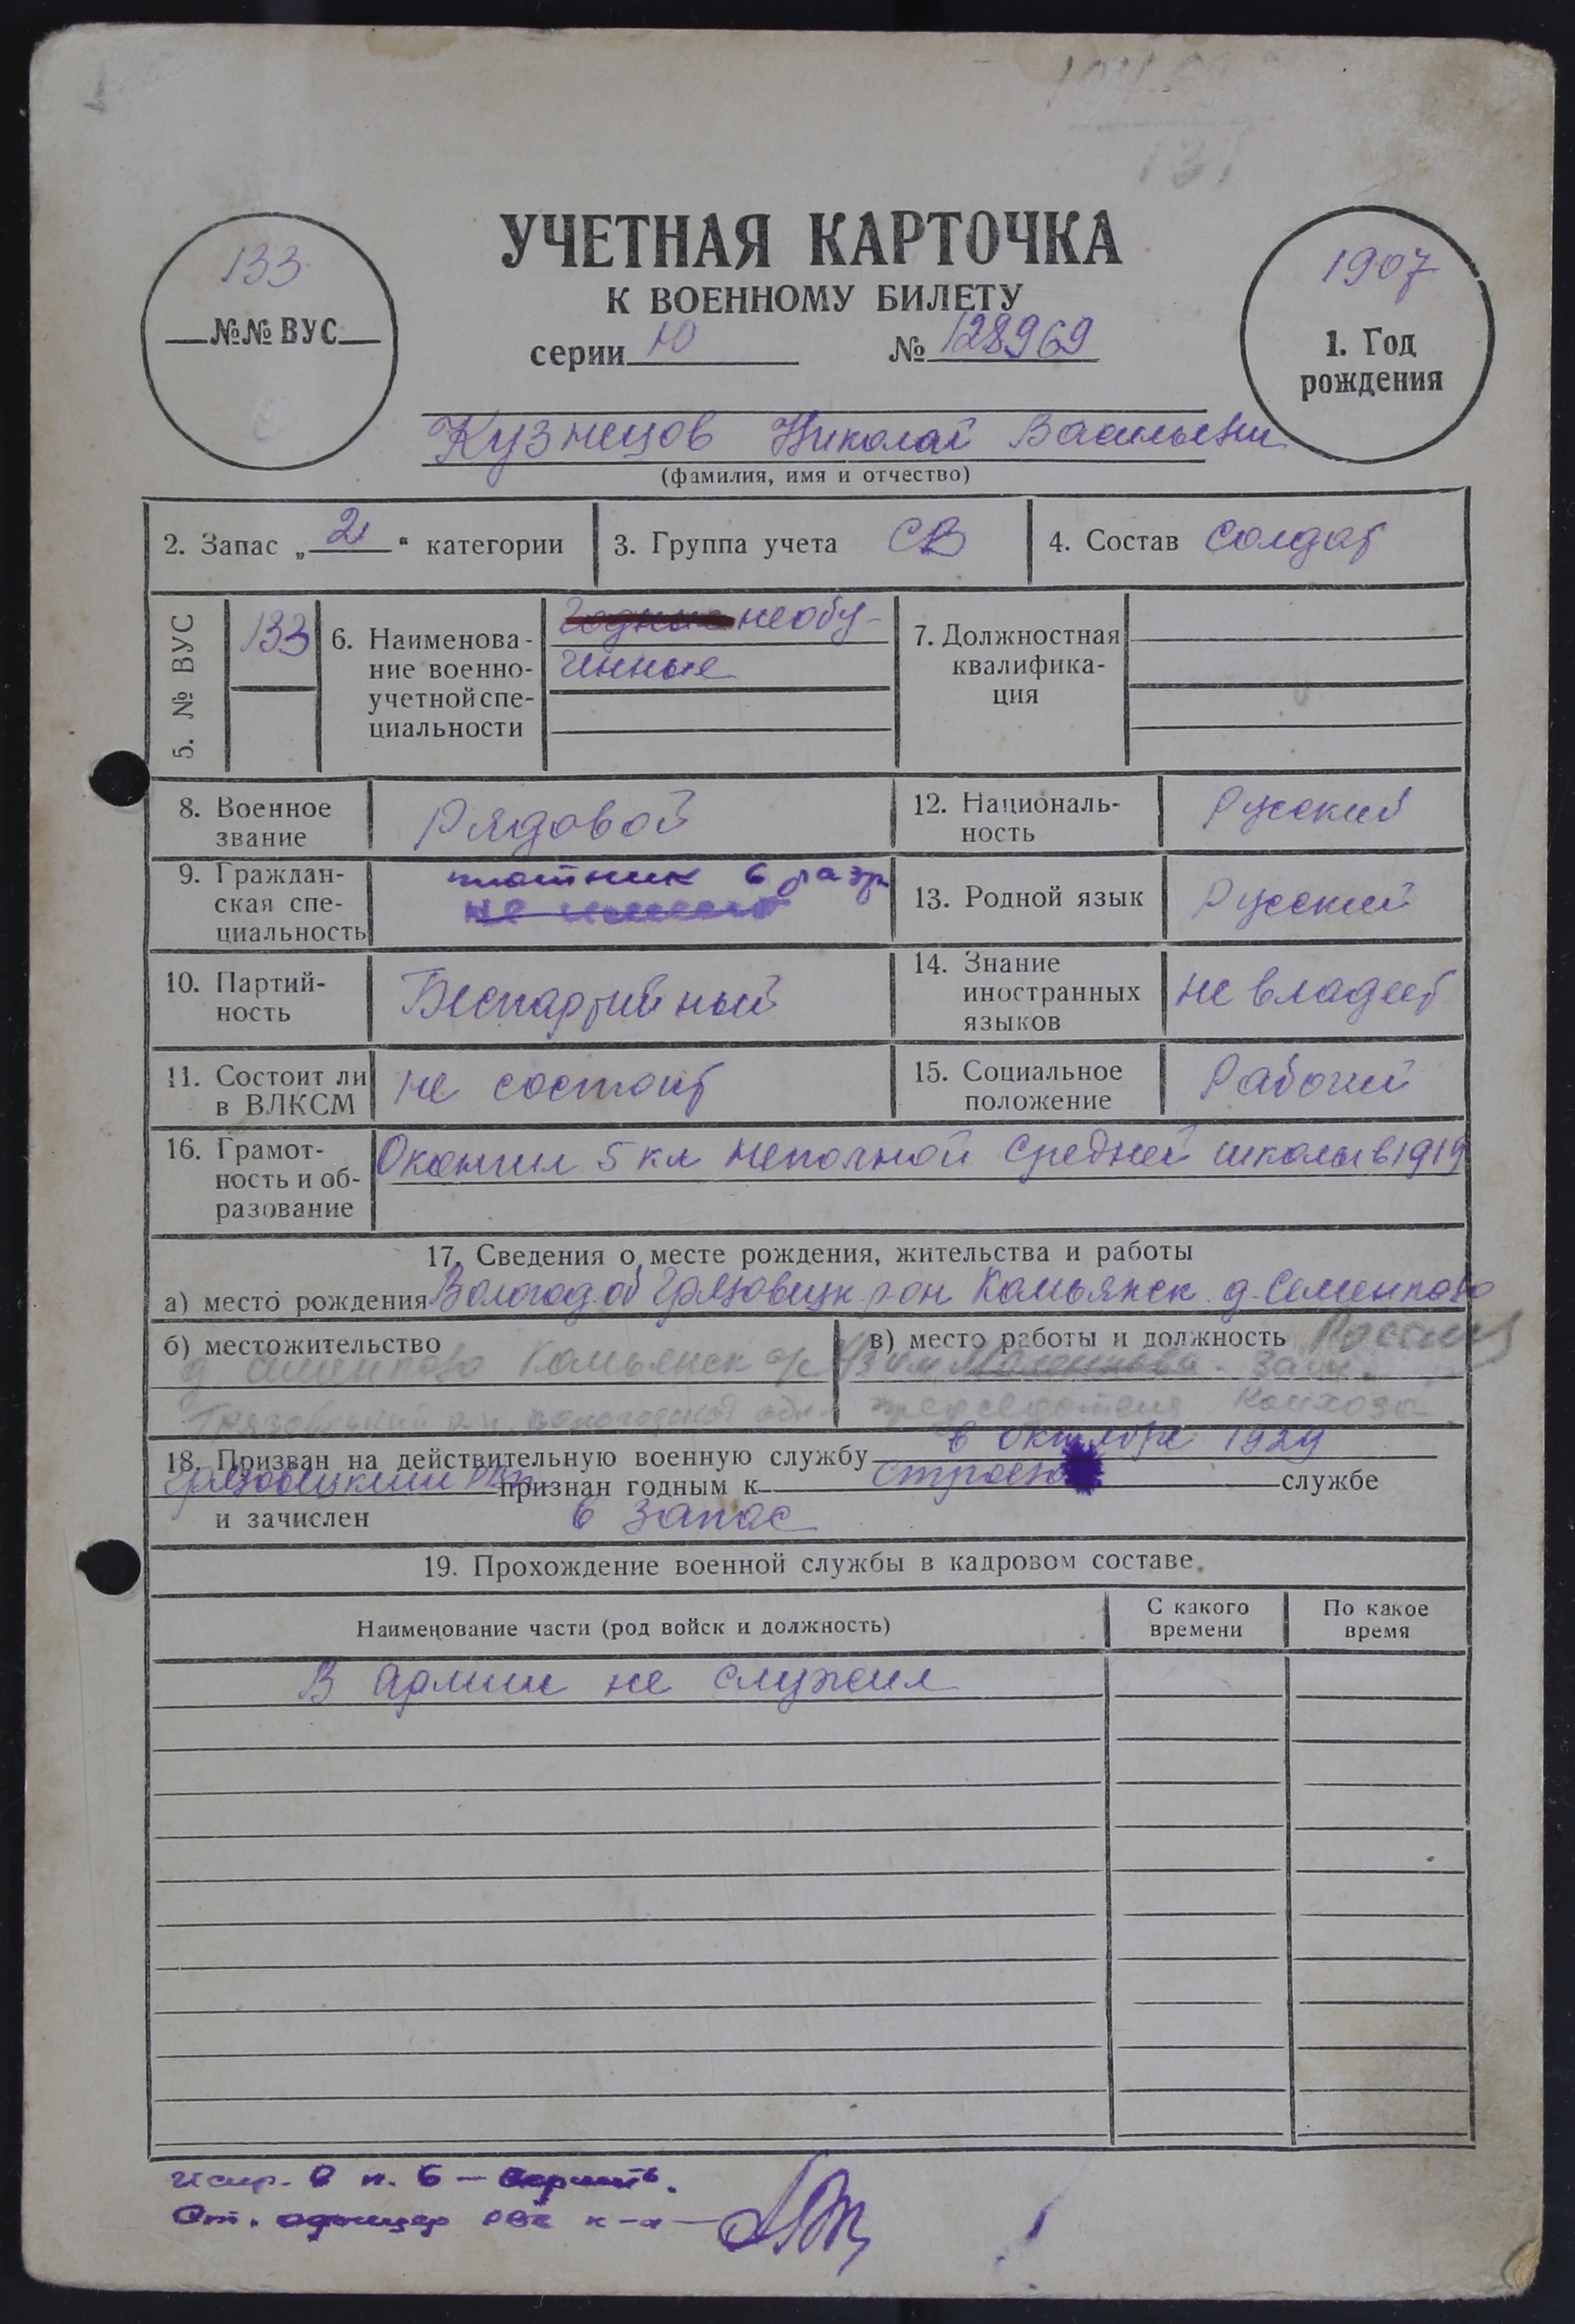 УЧЕТНАЯ КАРТОЧКА
К ВОЕННОМУ БИЛЕТУ
серии Ю № 128969
133
№№ ВУС
1907
1. Год
рождения
Кузнецов Николай Васильевич
(фамилия, имя и отчество)
2. Запас „2“ категории
3. Группа учета СВ
4. Состав Солдат
5. № ВУС 133
6. Наименова-
ние военно-
учетной спе-
циальности
Годные необу-
ченные
7. Должностная
квалифика-
ция
8. Военное
звание
Рядовой
12. Националь-
ность
Русский
9. Граждан-
ская спе-
циальность
плотник 6 разр
не
13. Родной язык Русский
10. Партий-
ность
Беспартийный
14. Знание
иностранных
языков
не владеет
11. Состоит ли
в ВЛКСМ
не состоит
15. Социальное
положение
Рабочий
16. Грамот-
ность и об-
разование
Окончил 5 кл неполной средней школы в 1919
17. Сведения о месте рождения, жительства и работы
а) место рождения Вологод об Грязовецк рон Камьянск д. Семенково
б) местожительство
д Семенково Камьянск с/с
Грязовецкий р-н. Вологодской обл.
в) место работы и должность Россия
К/з им Маленкова. Зам.
председателя колхоза
18. Призван на действительную военную службу в октябре 1929
Грязовецким РВК признан годным к строево службе
и зачислен в запас
19. Прохождение военной службы в кадровом составе.
Наименование части (род войск и должность)
С какого
времени
По какое
время
В армии не служил
испр. в п. 6 – верить.
Ст. офицер РВК к-н